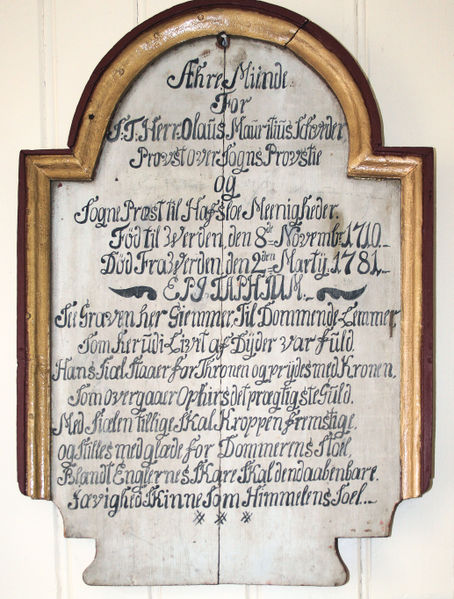 Æhre Minde
For
S.T. Herr: Olaüs Mauritiüs Schrøder
Provst over Sogns Provstie
og
Sogne Præst til Hafsloe Meenigheder.
Fød til Werden, den 8de Novembr: 1710.
Død Fra Werden, den 2den Martÿ, 1781.
EPITAPHIUM.
See Graven her Giemmer, Til Dommende Lemmer,
Som her udi Livet af Dÿder var fuld.
Hans Siæl staaer for Thronen og prÿdes med Kronen,
Som overgaaer Ophirs det prægtigste Guld.
Med Siælen tillige skal Kroppen fremstige,
og stilles med glæde for Dommerens Stoel,
Blandt Englernes Skare Skal den aabenbare
Ævighed Skinne Som Himmelens Soel.